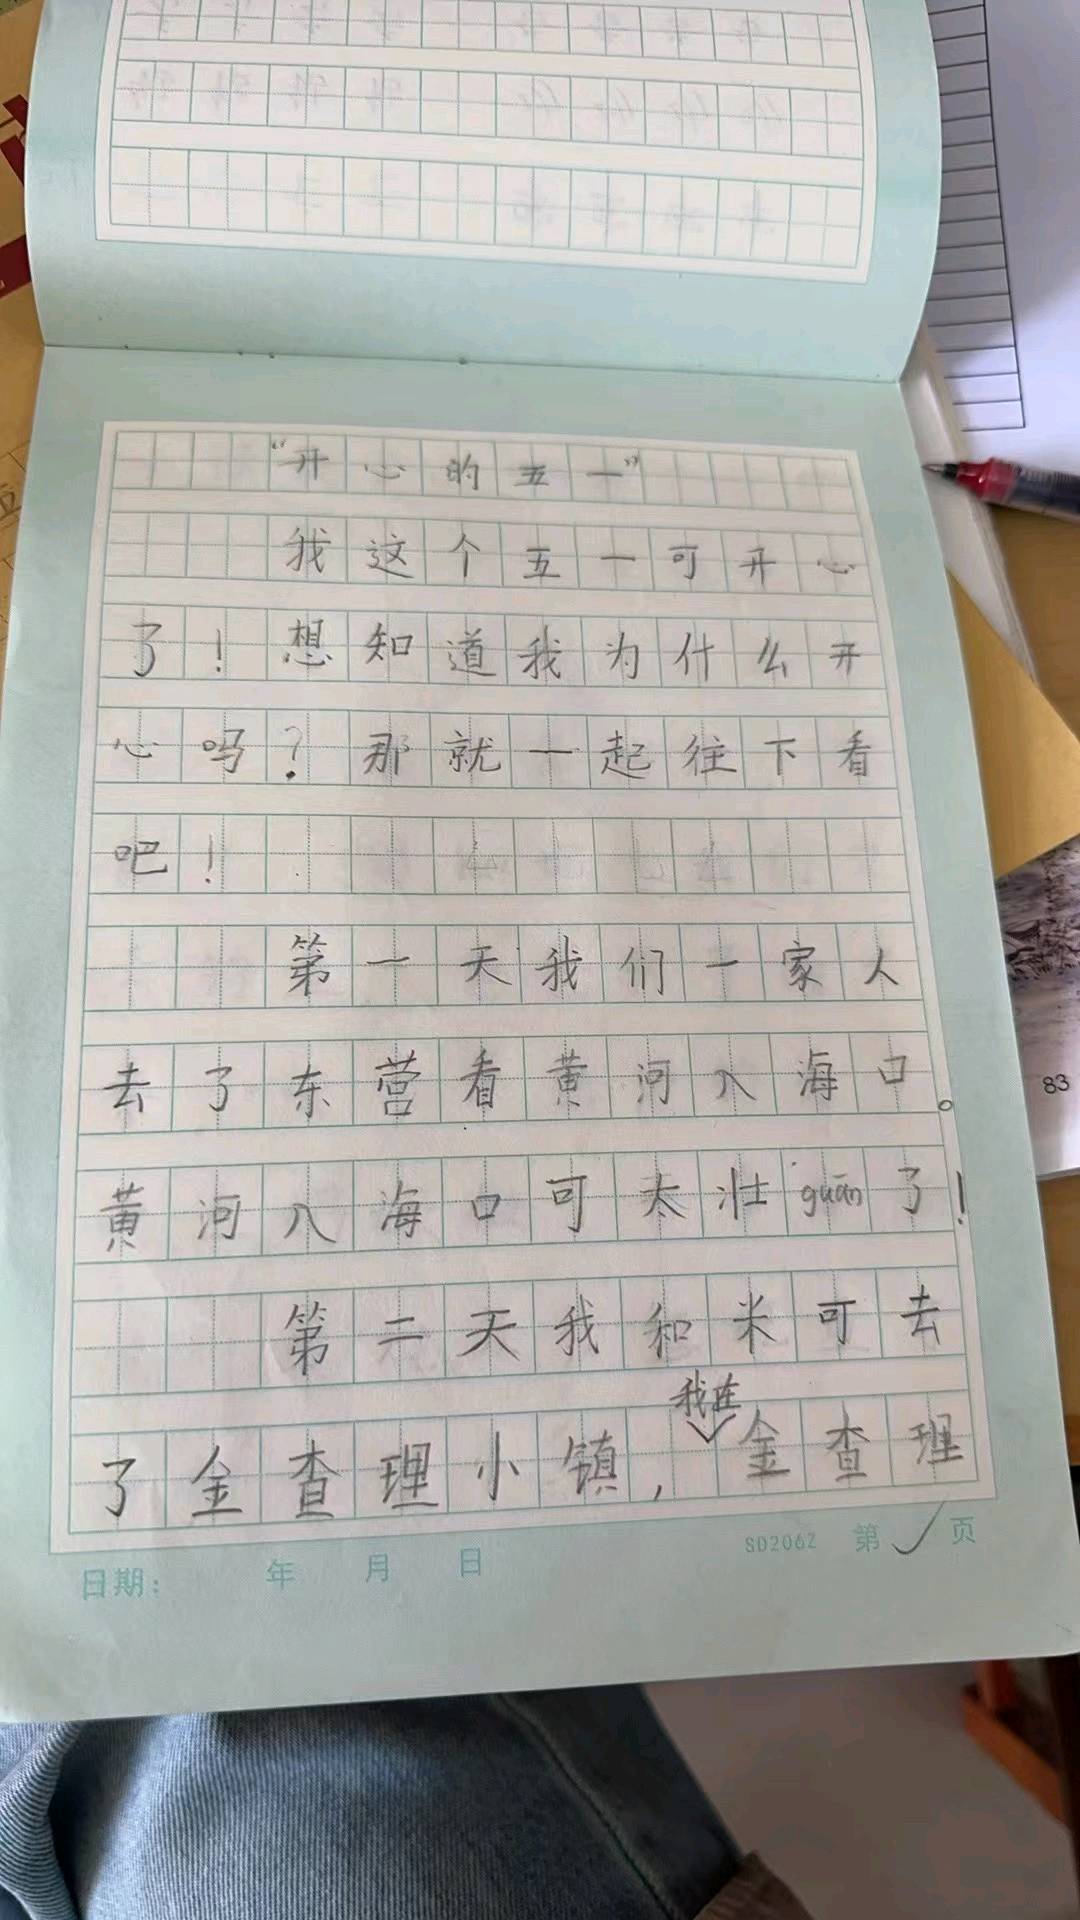 “开心的五一”
我这个五一可开心
了！想知道我为什么开
心吗？那就一起往下看
吧！
第一天我们一家人
去了东营看黄河入海口。
黄河入海口可太壮guān了！
第二天我和米可去
我在
了金查理小镇，金查理
日期： 年 月 日
SD2062 第 页
83